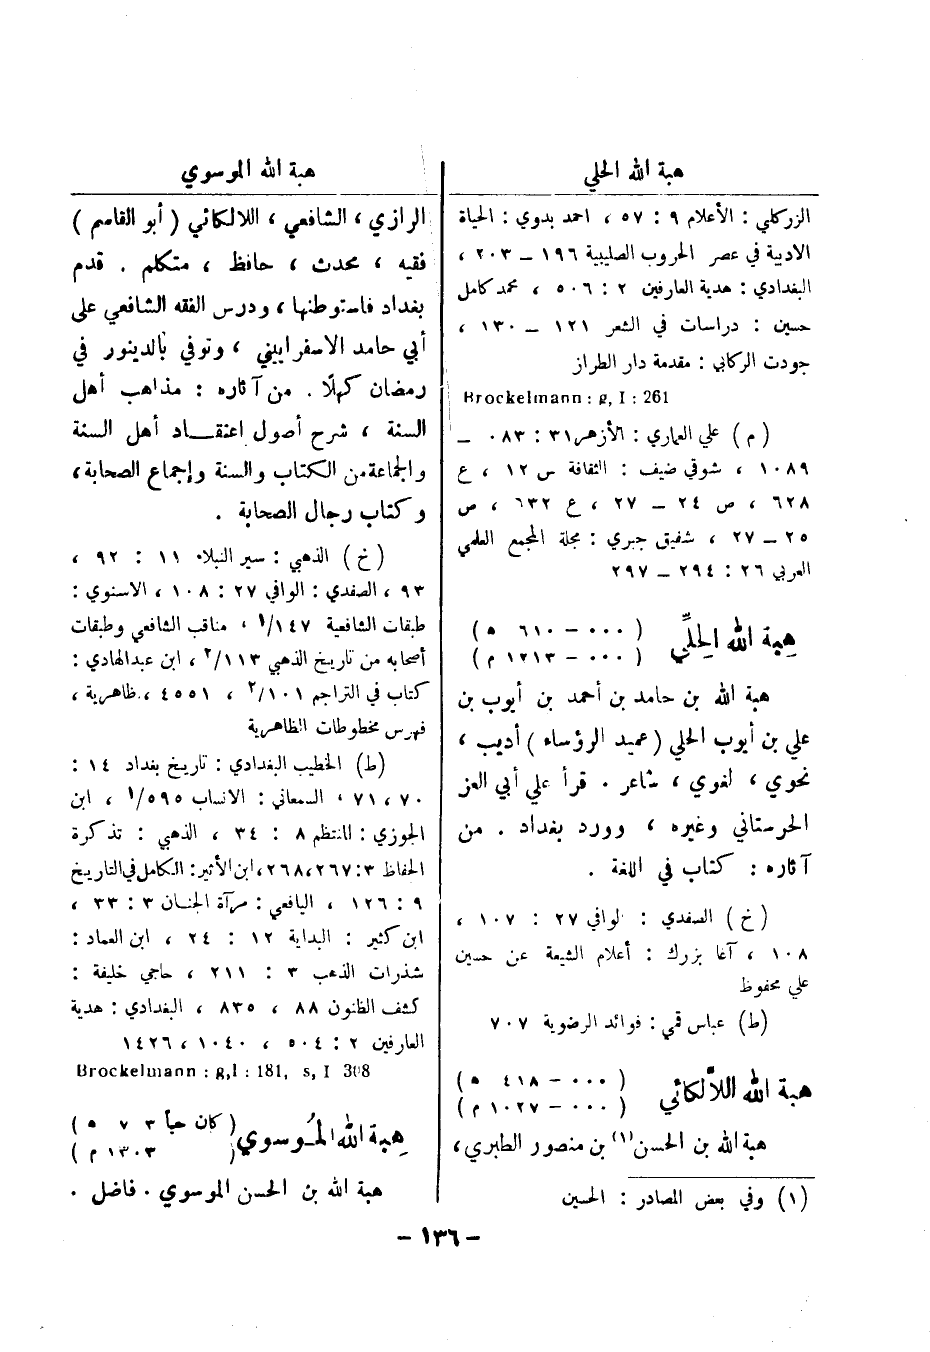 هبة الله الحلي
الزركلي : الأعلام ٩ : ٥٧ ، احمد بدوي : الحياة
الادبية في عصر الحروب الصليبية ١٩٦ – ٢٠٣ ،
البغدادي : هدية العارفين ٢ : ٥٠٦ ، محمد كامل
حسين : دراسات في الشعر ١٢١ – ١٣٠ ،
جودت الركابي : مقدمة دار الطراز
Brockelmann : g, I : 261
( م ) علي العماري : الأزهر ٣١ : ٠٨٣ –
١٠٨٩ ، شوقي ضيف : الثقافة س ١٢ ، ع
٦٢٨ ، ص ٢٤ – ٢٧ ، ع ٦٣٢ ، ص
٢٥ – ٢٧ ، شفيق جبري : مجلة المجمع العلمي
العربي ٢٦ : ٢٩٤ – ٢٩٧
هِبة الله الحِلِّي ( ٠٠٠ – ٦١٠ ه )
( ٠٠٠ – ١٢١٣ م )
هبة الله بن حامد بن أحمد بن أيوب بن
علي بن أيوب الحلي ( عميد الرؤساء ) أديب ،
نحوي ، لغوي ، شاعر . قرأ علي أبي العز
الخرستاني وغيره ، وورد بغداد . من
آثاره : كتاب في اللغة .
( خ ) الصفدي : الوافي ٢٧ : ١٠٧ ،
١٠٨ ، آغا بزرك : أعلام الشيعة عن حسين
علي محفوظ
( ط ) عباس قمي : فوائد الرضوية ٧٠٧
هبة الله اللاَّلَكائي ( ٠٠٠ – ٤١٨ ه )
( ٠٠٠ – ١٠٢٧ م )
هبة الله بن الحسن (١) بن منصور الطبري ،
(١) وفي بعض المصادر : الحسين
هبة الله الموسوي
الرازي ، الشافعي ، اللالكائي ( أبو القاسم )
فقيه ، محدث ، حافظ ، متكلم . قدم
بغداد فاستوطنها ، ودرس الفقه الشافعي على
أبي حامد الاسفراييني ، وتوفي بالدينور في
رمضان كهلًا . من آثاره : مذاهب أهل
السنة ، شرح أصول اعتقاد أهل السنة
والجماعة من الكتاب والسنة وإجماع الصحابة ،
وكتاب رجال الصحابة .
( خ ) الذهبي : سير النبلاء ١١ : ٩٢ ،
٩٣ ، الصفدي : الوافي ٢٧ : ١٠٨ ، الاسنوي :
طبقات الشافعية ١٤٧/١ ، مناقب الشافعي وطبقات
أصحابه من تاريخ الذهبي ١١٣/٢ ، ابن عبدالهادي :
كتاب في التراجم ١٠١/٢ ، ٤٥٥١ ، ظاهرية ،
فهرس مخطوطات الظاهرية
( ط ) الخطيب البغدادي : تاريخ بغداد ١٤ :
٧٠ ، ٧١ ، السمعاني : الانساب ٥٩٥/١ ، ابن
الجوزي : المنتظم ٨ : ٣٤ ، الذهبي : تذكرة
الحفاظ ٣ : ٢٦٧ ، ٢٦٨ ، ابن الأثير : الكامل في التاريخ
٩ : ١٢٦ ، اليافعي : مرآة الجنان ٣ : ٣٣ ،
ابن كثير : البداية ١٢ : ٢٤ ، ابن العماد :
شذرات الذهب ٣ : ٢١١ ، حاجي خليفة :
كشف الظنون ٨٨ ، ٨٣٥ ، البغدادي : هدية
العارفين ٢ : ٥٠٤ ، ١٠٤٠ ، ١٤٢٦
Brockelmann : g,I : 181, s, I 308
هِبة الله المُوسوي ( كان حياً ٧٠٣ ه )
( ١٣٠٣ م )
هبة الله بن الحسن الموسوي . فاضل .
– ١٣٦ –